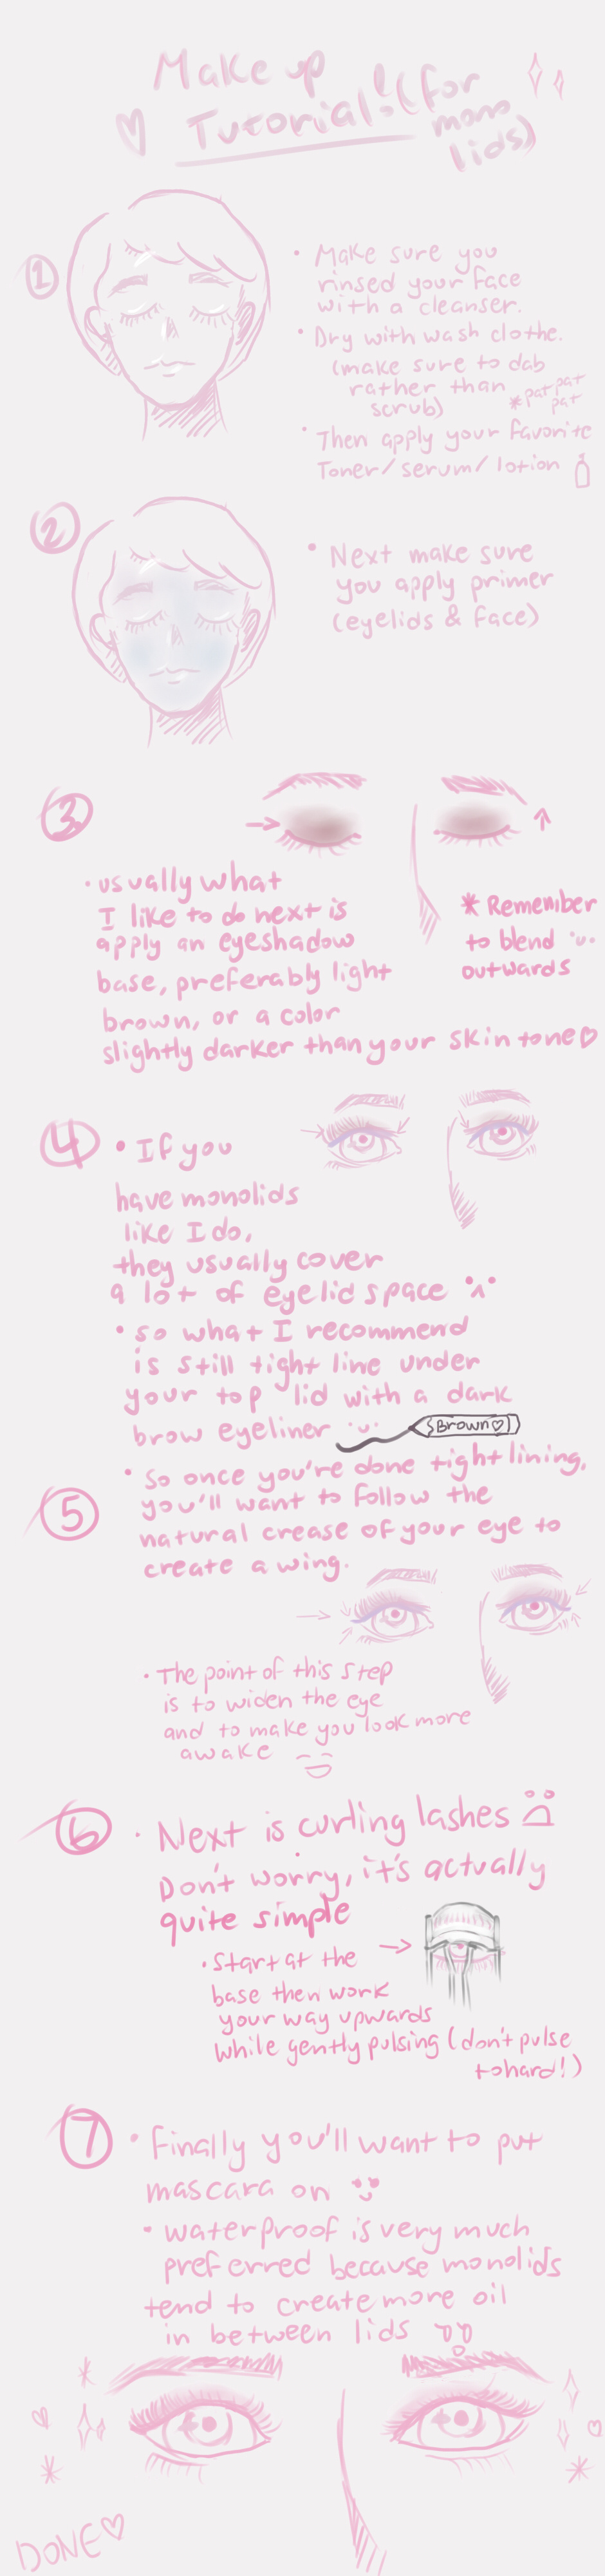 Make up
Tutorial! (for
mono
lids)
1
• Make sure you
rinsed your face
with a cleanser.
• Dry with wash clothe.
(make sure to dab
rather than
scrub)
*pat pat
pat
• Then apply your favorite
Toner/serum/lotion
2
• Next make sure
you apply primer
(eyelids & face)
3
• usually what
I like to do next is
apply an eyeshadow
base, preferably light
brown, or a color
slightly darker than your skin tone♡
* Remember
to blend
outwards
4
• If you
have monolids
like I do,
they usually cover
a lot of eyelid space
• so what I recommend
is still tight line under
your top lid with a dark
brow eyeliner
Brown♡
5
• so once you're done tight lining,
you'll want to follow the
natural crease of your eye to
create a wing.
• The point of this step
is to widen the eye
and to make you look more
awake
6
• Next is curling lashes
Don't worry, it's actually
quite simple
• Start at the
base then work
your way upwards
while gently pulsing (don't pulse
to hard!)
7
• Finally you'll want to put
mascara on
• waterproof is very much
preferred because monolids
tend to create more oil
in between lids
DONE♡